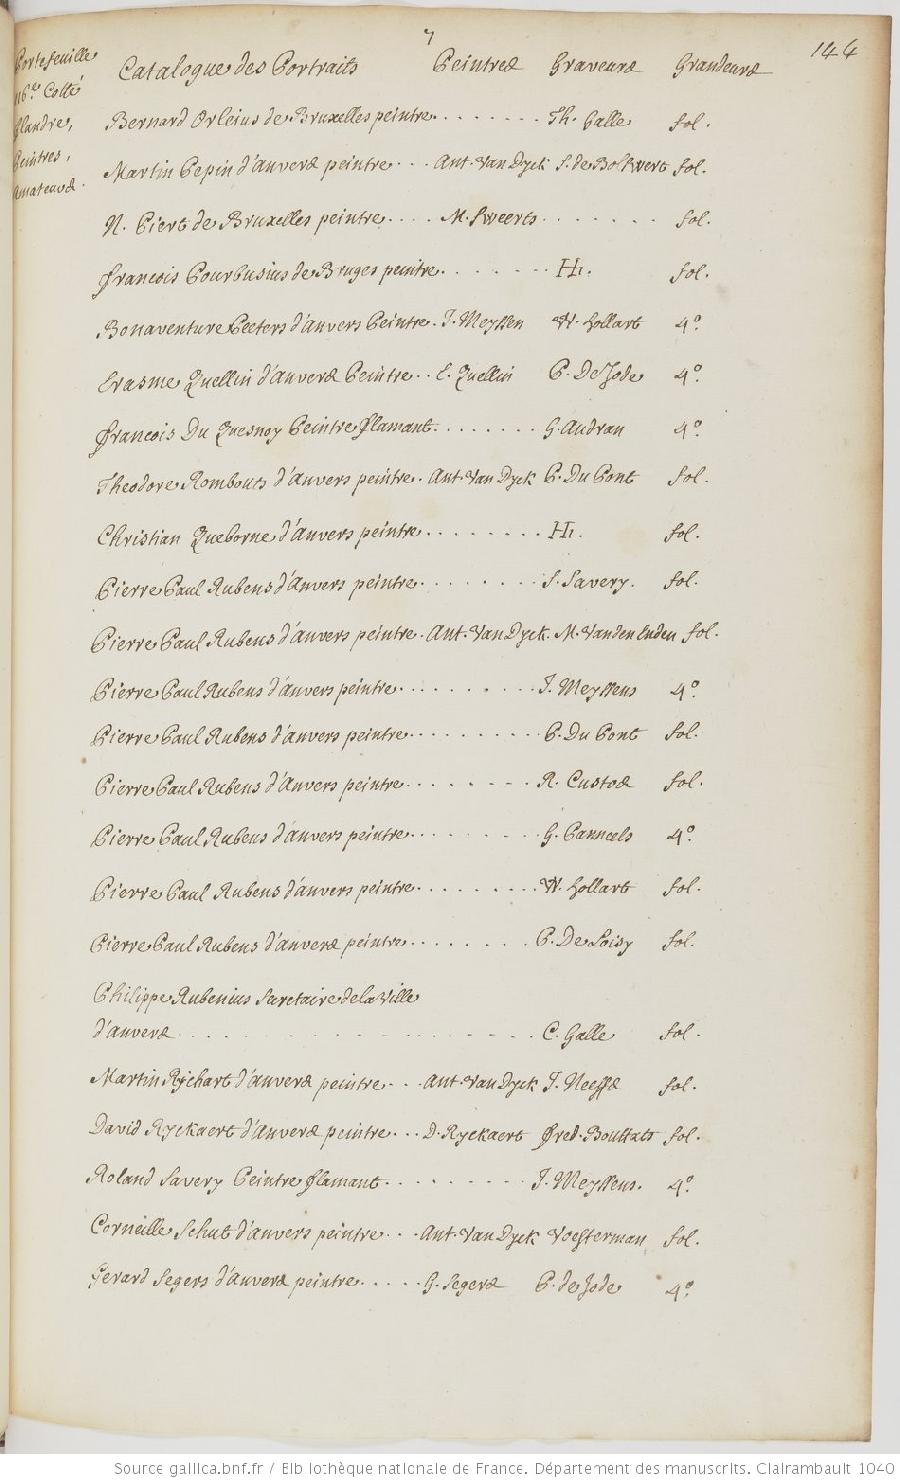 7
144
Portefeuille
116e Cotté
flandre,
Peintres,
Amateurs.
Catalogue des Portraits Peintres Graveurs Grandeurs
Bernard Orleius de Bruxelles peintre ........ Th. Galle fol.
Martin Pepin d'anvers peintre ... Ant. Van Dyck S. de Bolswert fol.
N. Piert de Bruxelles peintre .... M. Sweerts ....... fol.
francois Pourbusius de Bruges peintre ....... H. fol.
Bonaventure Peeters d'anvers Peintre . J. Meyssen W. hollart 4º.
Erasme Quellin d'anvers Peintre .. E. Quellin P. De Jode 4º.
francois Du Quesnoy Peintre flamant ....... G. Audran 4º.
Theodore Rombouts d'anvers peintre . Ant. Van Dyck P. Du Pont fol.
Christian Queborne d'anvers peintre ........ H. fol.
Pierre Paul Rubens d'anvers peintre ........ S. Savery. fol.
Pierre Paul Rubens d'anvers peintre . Ant. Van Dyck. M. Vanden Enden fol.
Pierre Paul Rubens d'anvers peintre ......... J. Meyssens 4º.
Pierre Paul Rubens d'anvers peintre .......... P. Du Pont fol.
Pierre Paul Rubens d'Anvers peintre ......... R. Custos fol.
Pierre Paul Rubens d'anvers peintre ......... G. Panneels 4º.
Pierre Paul Rubens d'anvers peintre ......... W. hollart fol.
Pierre Paul Rubens d'anvers peintre ........ P. De Loisy fol.
Philippe Rubenius Sacretaire de la Ville
d'anvers ................ C. Galle fol.
Martin Rychart d'anvers peintre ... Ant. Van Dyck J. Neeffs fol.
David Ryckaert d'anvers peintre ... D. Ryckaert fred. Bouttats fol.
Roland Savery Peintre flamant ......... J. Meyssens. 4º.
Corneille Schut d'anvers peintre ... Ant. Van Dyck Voesterman fol.
Gerard Segers d'anvers peintre ..... G. Segers P. de Jode 4º.
Source gallica.bnf.fr / Bibliothèque nationale de France. Département des manuscrits. Clairambault 1040